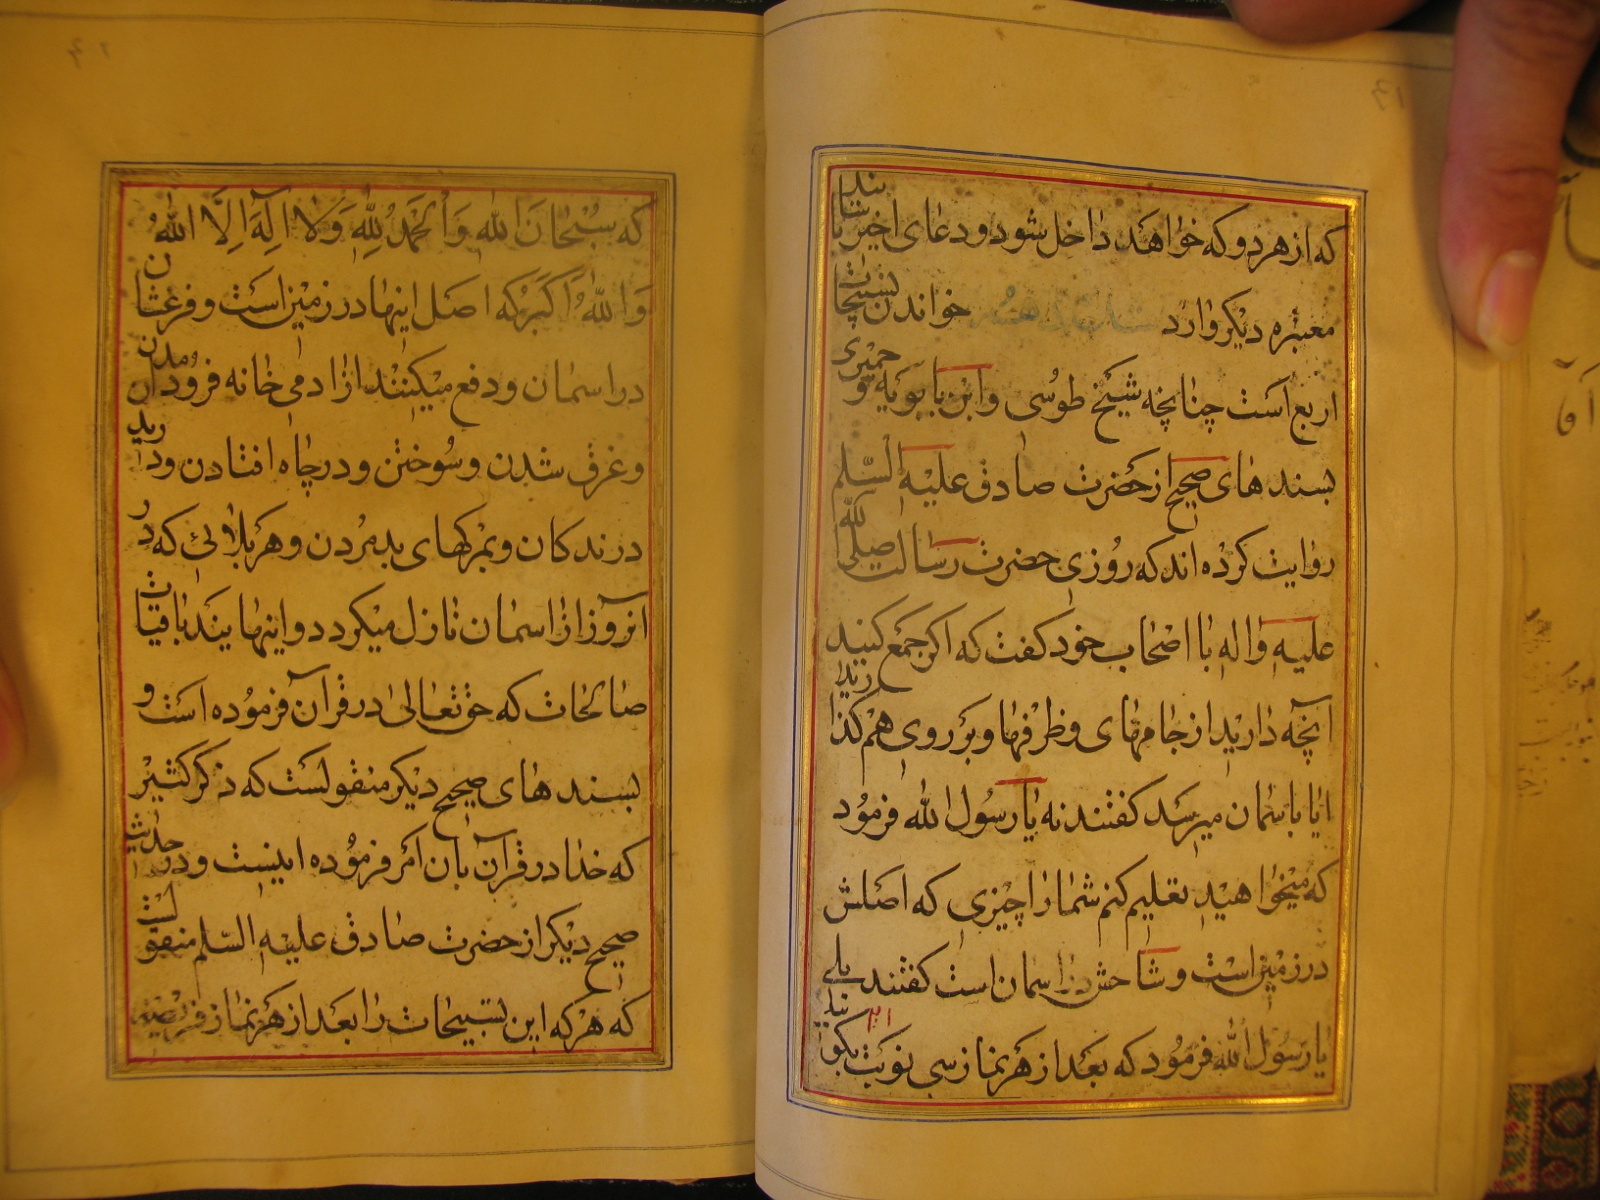 که از هر دو که خواهد داخل شود و دعای اخیر با سند
معتبره دیگر وارد خواندن تسبیحات
اربع است چنانچه شیخ طوسی و ابن بابویه و حمیری
بسند های صحیح از حضرت صادق علیه السّلم
روایت کرده اند که روزی حضرت رسالت صلی الله
علیه واله با اصحاب خود کفت که اکر جمع کنید
انچه دارید از جامهای و ظرفها و بر روی هم کذارید
ایا باسمان میرسد کفتند نه یا رسول الله فرمود
که میخواهید تعلیم کنم شما را چیزی که اصلش
در زمین است و شاخش در اسمان است کفتند بلی
یا رسول الله فرمود که بعد از هر نماز سی نوبت بکویند
که سُبْحٰانَ اللهِ وَالْحَمْدُ لِلّٰهِ وَلا اِلٰهَ اِلَّا اللهُ
وَاللهُ اَکْبَر که اصل اینها در زمین است و فرعشان
در اسمان و دفع میکنند از ادمی خانه فرود امدن
و غرق شدن و سوختن و در چاه افتادن و دریدن
درندکان و مرکهای بد مردن و هر بلائی که در
انروز از اسمان نازل میکردد و اینهایند باقیات
صالحات که حق تعالی در قرآن فرموده است و
بسند های صحیح دیکر منقولست که ذکر کثیر
که خدا در قرآن بان امر فرموده اینست و در حدیث
صحیح دیکر از حضرت صادق علیه السّلم منقولست
که هر که این تسبیحات را بعد از هر نماز فریضه